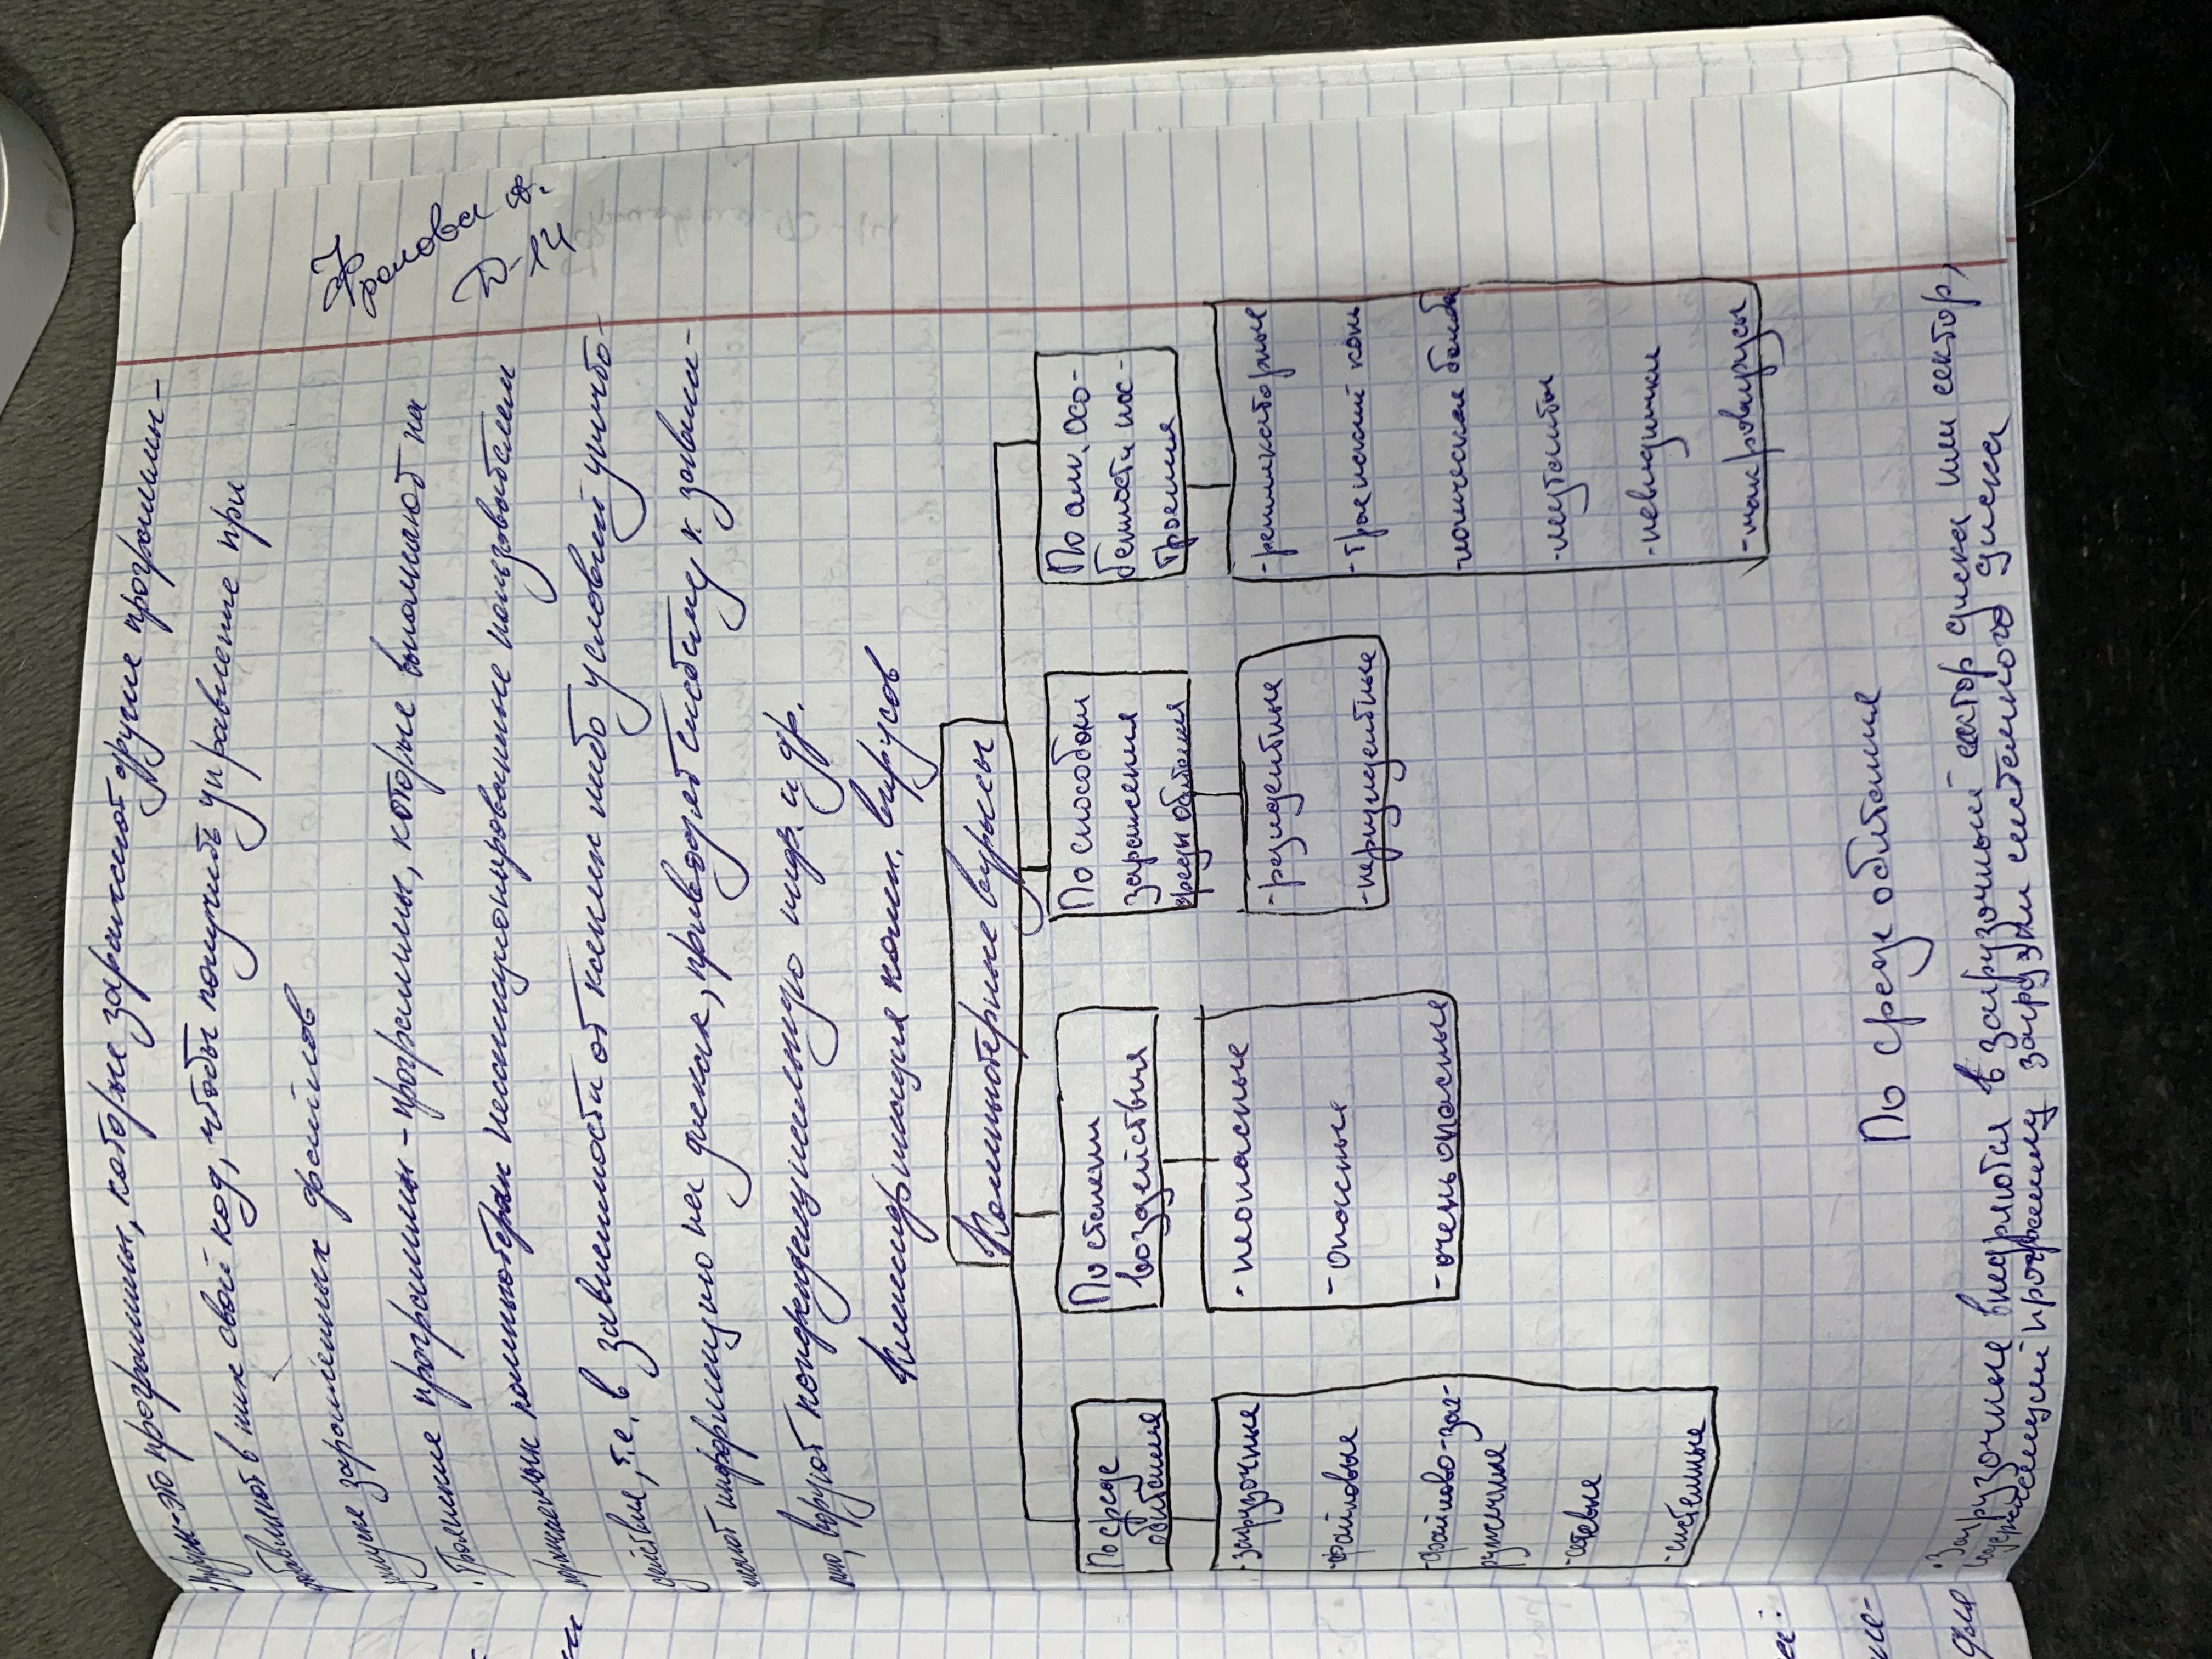 Фролова Я.
Д-14
· Вирусы - это программы, которые заражают другие программы -
добавляют в них свой код, чтобы получить управление при
запуске зараженных файлов
· Троянские программы - программы, которые выполняют на
компьютерах несанкционированные пользователем
действия, т.е. в зависимости от каких либо условий уничто-
жают информацию на дисках, приводят систему к зависа-
нию, воруют конфиденциальную инф. и др.
Классификация комп. вирусов
Компьютерные вирусы
По среде
обитания
- загрузочные
- файловые
- файлово-заг-
рузочные
- сетевые
- системные
По степени
воздействия
- неопасные
- опасные
- очень опасные
По способам
заражения
среды обитания
- резидентные
- нерезидентные
По алг. осо-
бенности пос-
троения
- репликаторные
- троянский конь
- логическая бомба
- мутанты
- невидимки
- макровирусы
По среде обитания
· Загрузочные внедряются в загрузочный сектор диска или сектор,
содержащий программу загрузки системного диска